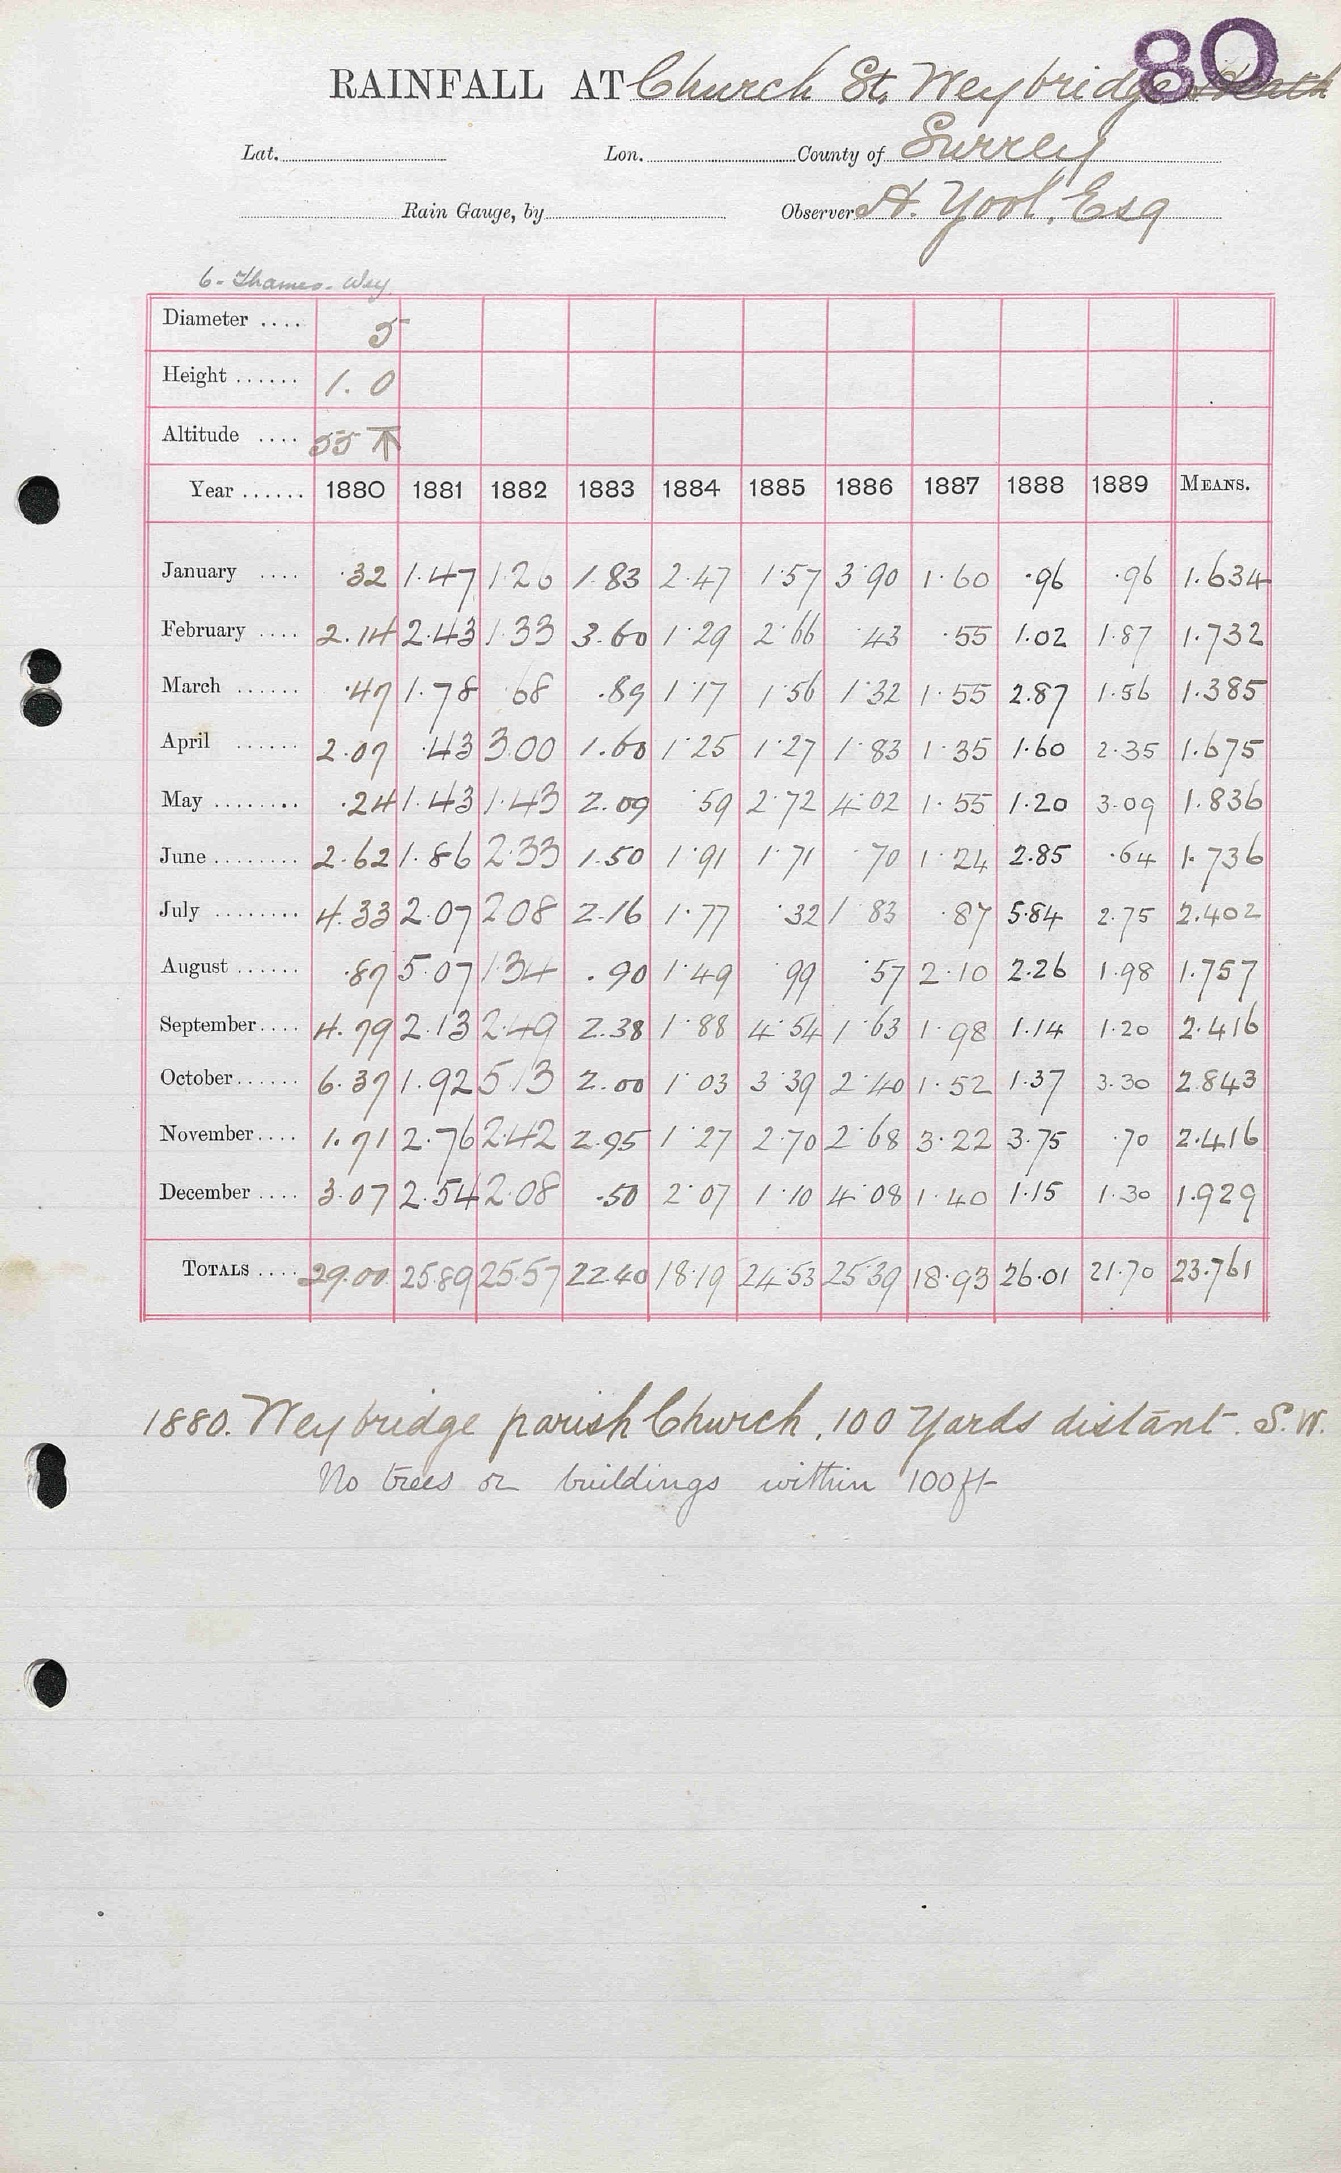 80
RAINFALL AT Church St. Weybridge Heath
Lat. Lon. County of Surrey
Rain Gauge, by Observer A. Yool, Esq
6 - Thames - Wey
Diameter .... 5
Height ...... 1. 0
Altitude .... 55 ↑
Year ...... 1880 1881 1882 1883 1884 1885 1886 1887 1888 1889 MEANS.
January .... .32 1.47 1.26 1.83 2.47 1.57 3.90 1.60 .96 .96 1.634
February .... 2.14 2.43 1.33 3.60 1.29 2.66 .43 .55 1.02 1.87 1.732
March ...... .47 1.78 .68 .89 1.17 1.56 1.32 1.55 2.87 1.56 1.385
April ...... 2.07 .43 3.00 1.60 1.25 1.27 1.83 1.35 1.60 2.35 1.675
May ........ .24 1.43 1.43 2.09 .59 2.72 4.02 1.55 1.20 3.09 1.836
June ........ 2.62 1.86 2.33 1.50 1.91 1.71 .70 1.24 2.85 .64 1.736
July ........ 4.33 2.07 2.08 2.16 1.77 .32 1.83 .87 5.84 2.75 2.402
August ...... .87 5.07 1.34 .90 1.49 .99 .57 2.10 2.26 1.98 1.757
September .... 4.79 2.13 2.49 2.38 1.88 4.54 1.63 1.98 1.14 1.20 2.416
October ...... 6.37 1.92 5.13 2.00 1.03 3.39 2.40 1.52 1.37 3.30 2.843
November .... 1.71 2.76 2.42 2.95 1.27 2.70 2.68 3.22 3.75 .70 2.416
December .... 3.07 2.54 2.08 .50 2.07 1.10 4.08 1.40 1.15 1.30 1.929
TOTALS .... 29.00 25.89 25.57 22.40 18.19 24.53 25.39 18.93 26.01 21.70 23.761
1880. Weybridge parish Church, 100 Yards distant. S.W.
No trees or buildings within 100ft